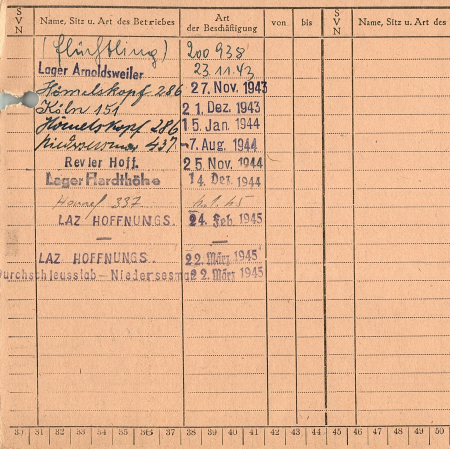 S V N Name, Sitz u. Art des Betriebes Art der Beschäftigung von bis S V N Name, Sitz u. Art des
(flüchtling) 200 938
Lager Arnoldsweiler 23.11.43
Hömelskopf 286 27. Nov. 1943
Köln 151 21. Dez. 1943
Hömelskopf 286 15. Jan. 1944
437 -7. Aug. 1944
Revier Hoff. 25. Nov. 1944
Lager Hardthöhe 14. Dez. 1944
Honnef 337 45
LAZ HOFFNUNGS. 24. Feb. 1945
— —
LAZ HOFFNUNGS. 22. März 1945
Durchschleusslab - Niedersesmar 22. März 1945
30 31 32 33 34 35 36 37 38 39 40 41 42 43 44 45 46 47 48 49 50